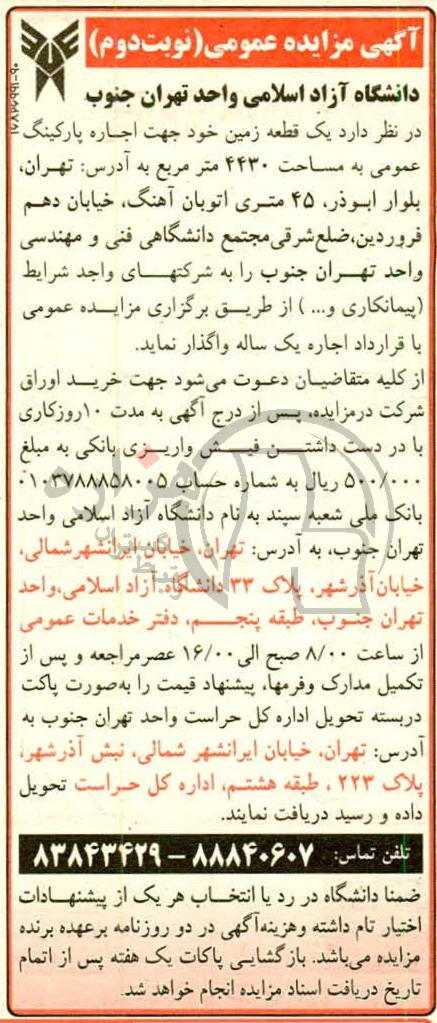 آگهی مزایده عمومی(نوبت دوم)
دانشگاه آزاد اسلامی واحد تهران جنوب
در نظر دارد یک قطعه زمین خود جهت اجاره پارکینگ
عمومی به مساحت ۴۴۳۰ متر مربع به آدرس: تهران،
بلوار ابوذر، ۴۵ متری اتوبان آهنگ، خیابان دهم
فروردین،ضلع شرقی مجتمع دانشگاهی فنی و مهندسی
واحد تهران جنوب را به شرکتهای واجد شرایط
(پیمانکاری و... ) از طریق برگزاری مزایده عمومی
با قرارداد اجاره یک ساله واگذار نماید.
از کلیه متقاضیان دعوت می‌شود جهت خرید اوراق
شرکت درمزایده، پس از درج آگهی به مدت ۱۰روزکاری
با در دست داشتن فیش واریزی بانکی به مبلغ
۵۰۰/۰۰۰ ریال به شماره حساب ۰۱۰۳۷۸۸۸۵۸۰۰۵
بانک ملی شعبه سپند به نام دانشگاه آزاد اسلامی واحد
تهران جنوب، به آدرس: تهران، خیابان ایرانشهرشمالی،
خیابان آذرشهر، پلاک ۳۳ دانشگاه آزاد اسلامی،واحد
تهران جنوب، طبقه پنجم، دفتر خدمات عمومی
از ساعت ۸/۰۰ صبح الی ۱۶/۰۰ عصرمراجعه و پس از
تکمیل مدارک وفرمها، پیشنهاد قیمت را به‌صورت پاکت
دربسته تحویل اداره کل حراست واحد تهران جنوب به
آدرس: تهران، خیابان ایرانشهر شمالی، نبش آذرشهر،
پلاک ۲۲۳ ، طبقه هشتم، اداره کل حراست تحویل
داده و رسید دریافت نمایند.
تلفن تماس: ۸۸۸۴۰۶۰۷ – ۸۳۸۴۳۴۲۹
ضمنا دانشگاه در رد یا انتخاب هر یک از پیشنهادات
اختیار تام داشته وهزینه‌آگهی در دو روزنامه برعهده برنده
مزایده می‌باشد. بازگشایی پاکات یک هفته پس از اتمام
تاریخ دریافت اسناد مزایده انجام خواهد شد.